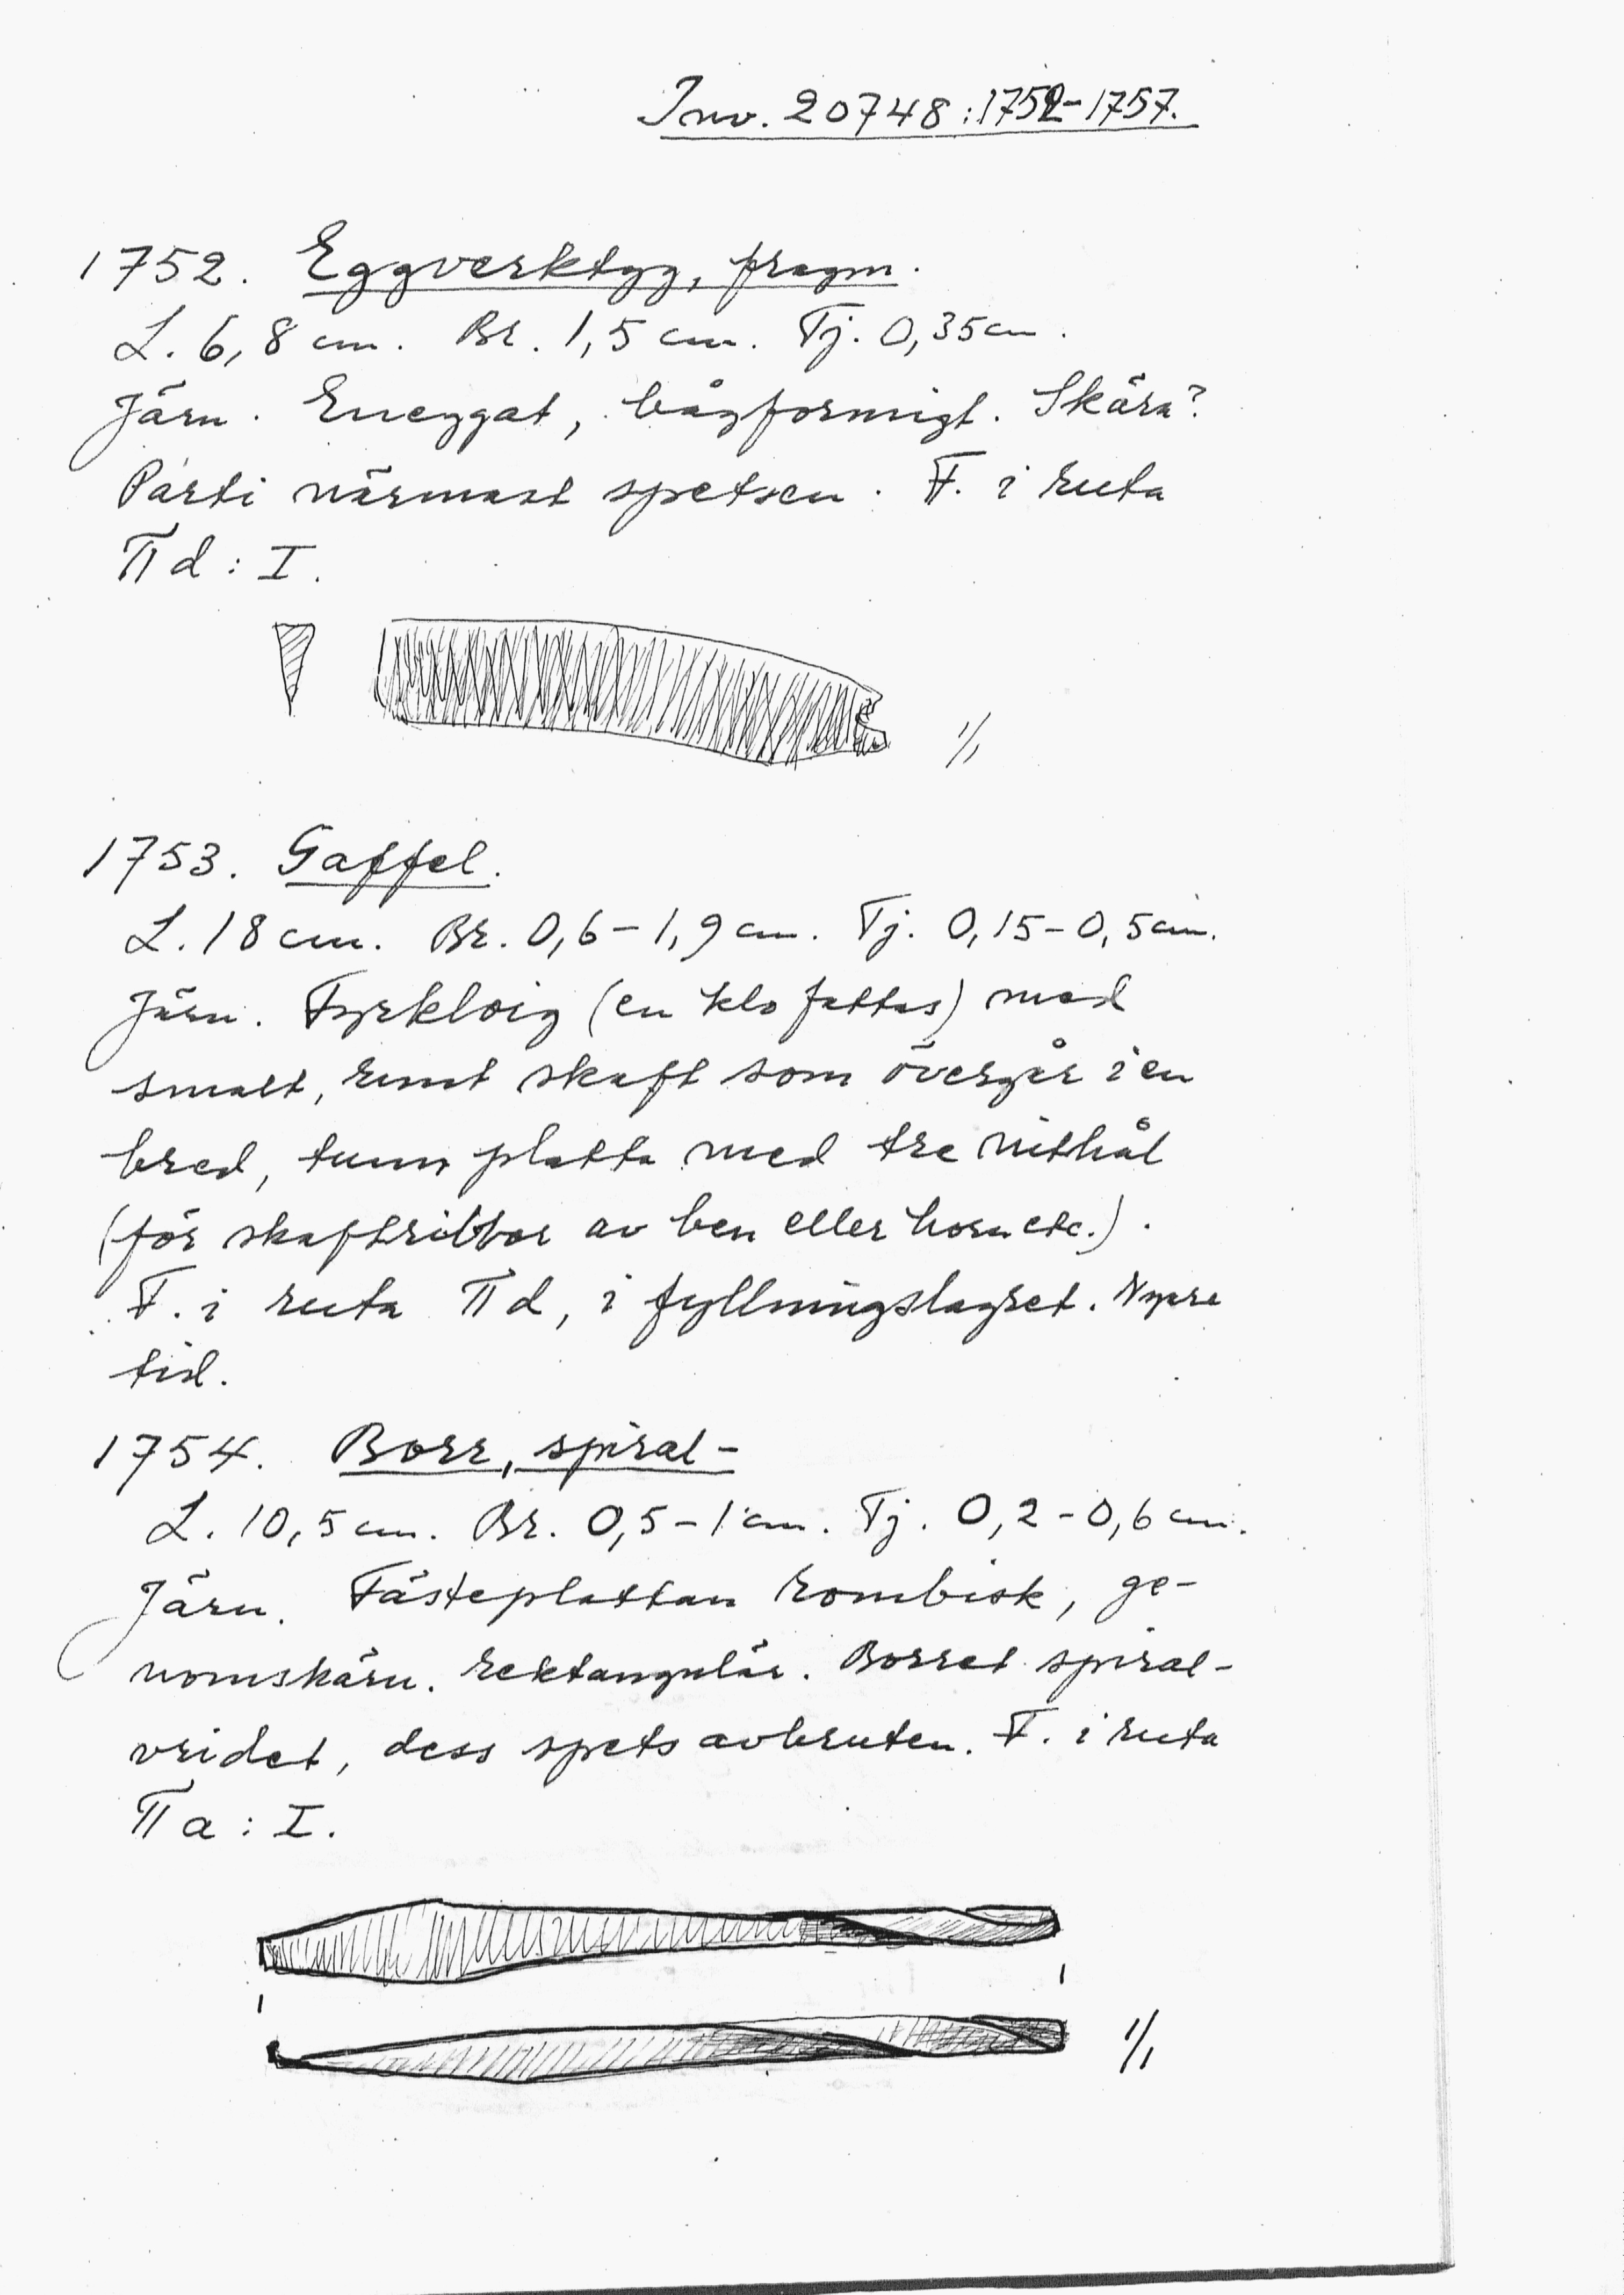 Inv. 20748:1752-1757.
1752. Eggverktyg, fragm.
L. 6,8 cm. Br. 1,5 cm. Tj. 0,35 cm.
Järn. Eneggat, bågformigt. Skära?
Parti närmast spetsen. F. i ruta
II d : I.
1/1
1753. Gaffel.
L. 18 cm. Br. 0,6-1,9 cm. Tj. 0,15-0,5 cm.
Järn. Fyrkloig (en klo fattas) med
smalt, runt skaft som övergår i en
bred, tunn platta med tre nithål
(för skaft av ben eller horn etc.).
F. i ruta II d, i fyllningslagret. Nyare
tid.
1754. Borr, spiral-
L. 10,5 cm. Br. 0,5-1 cm. Tj. 0,2-0,6 cm.
Järn. Fästeplattan rombisk, ge-
nomskärn. rektangulär. Borret spiral-
vridet, dess spets avbruten. F. i ruta
II a : I.
1/1